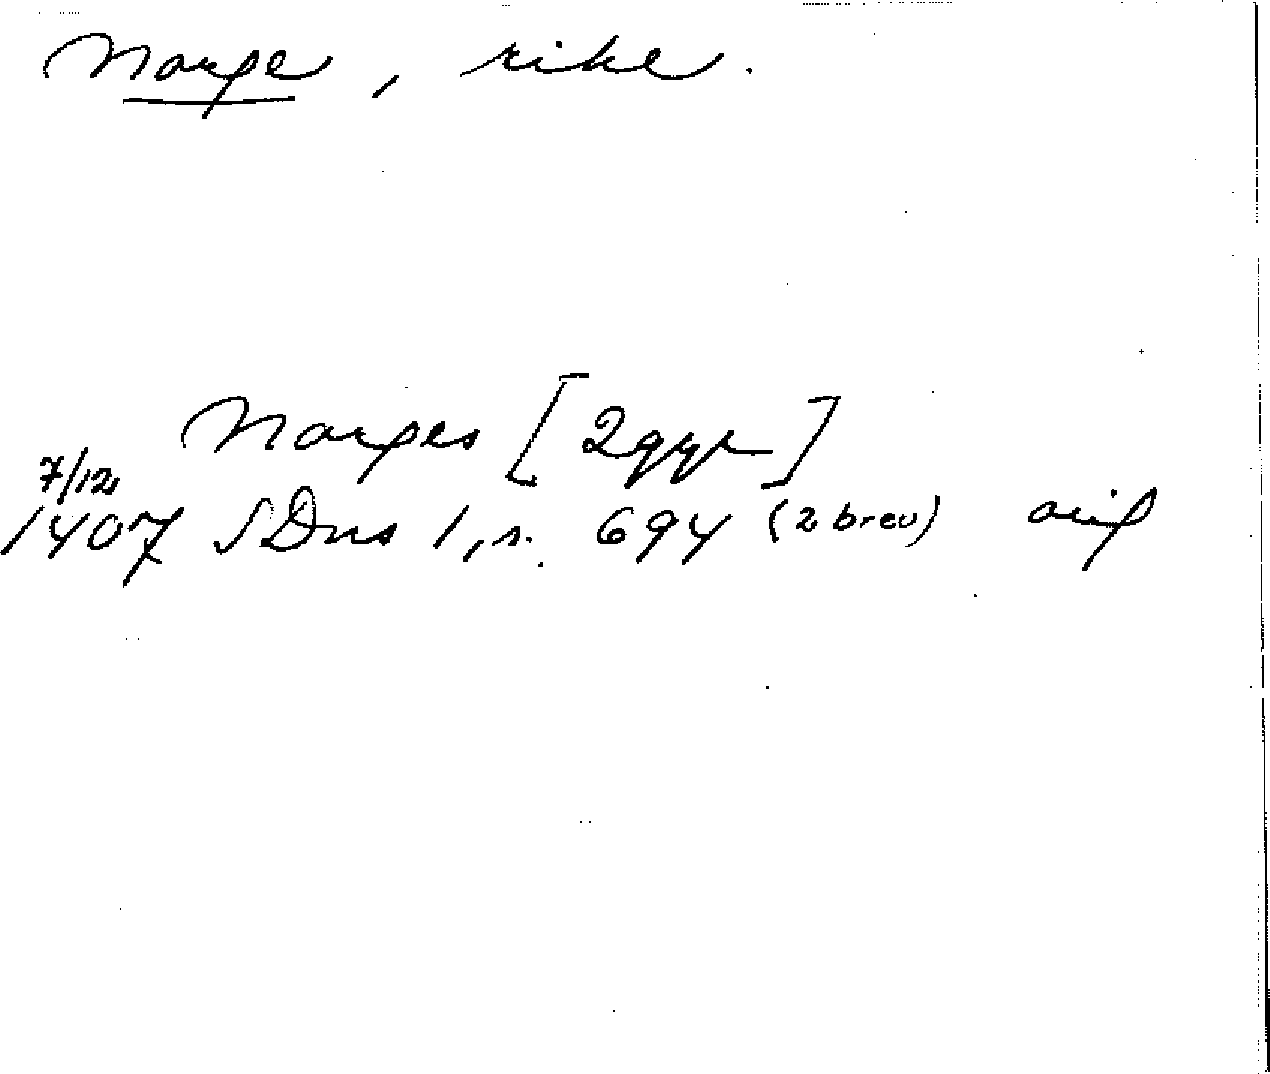 Norge, rike.
Norges [2 ggr]
7/12
1407 SDns 1, s. 694 (2 brev) orig